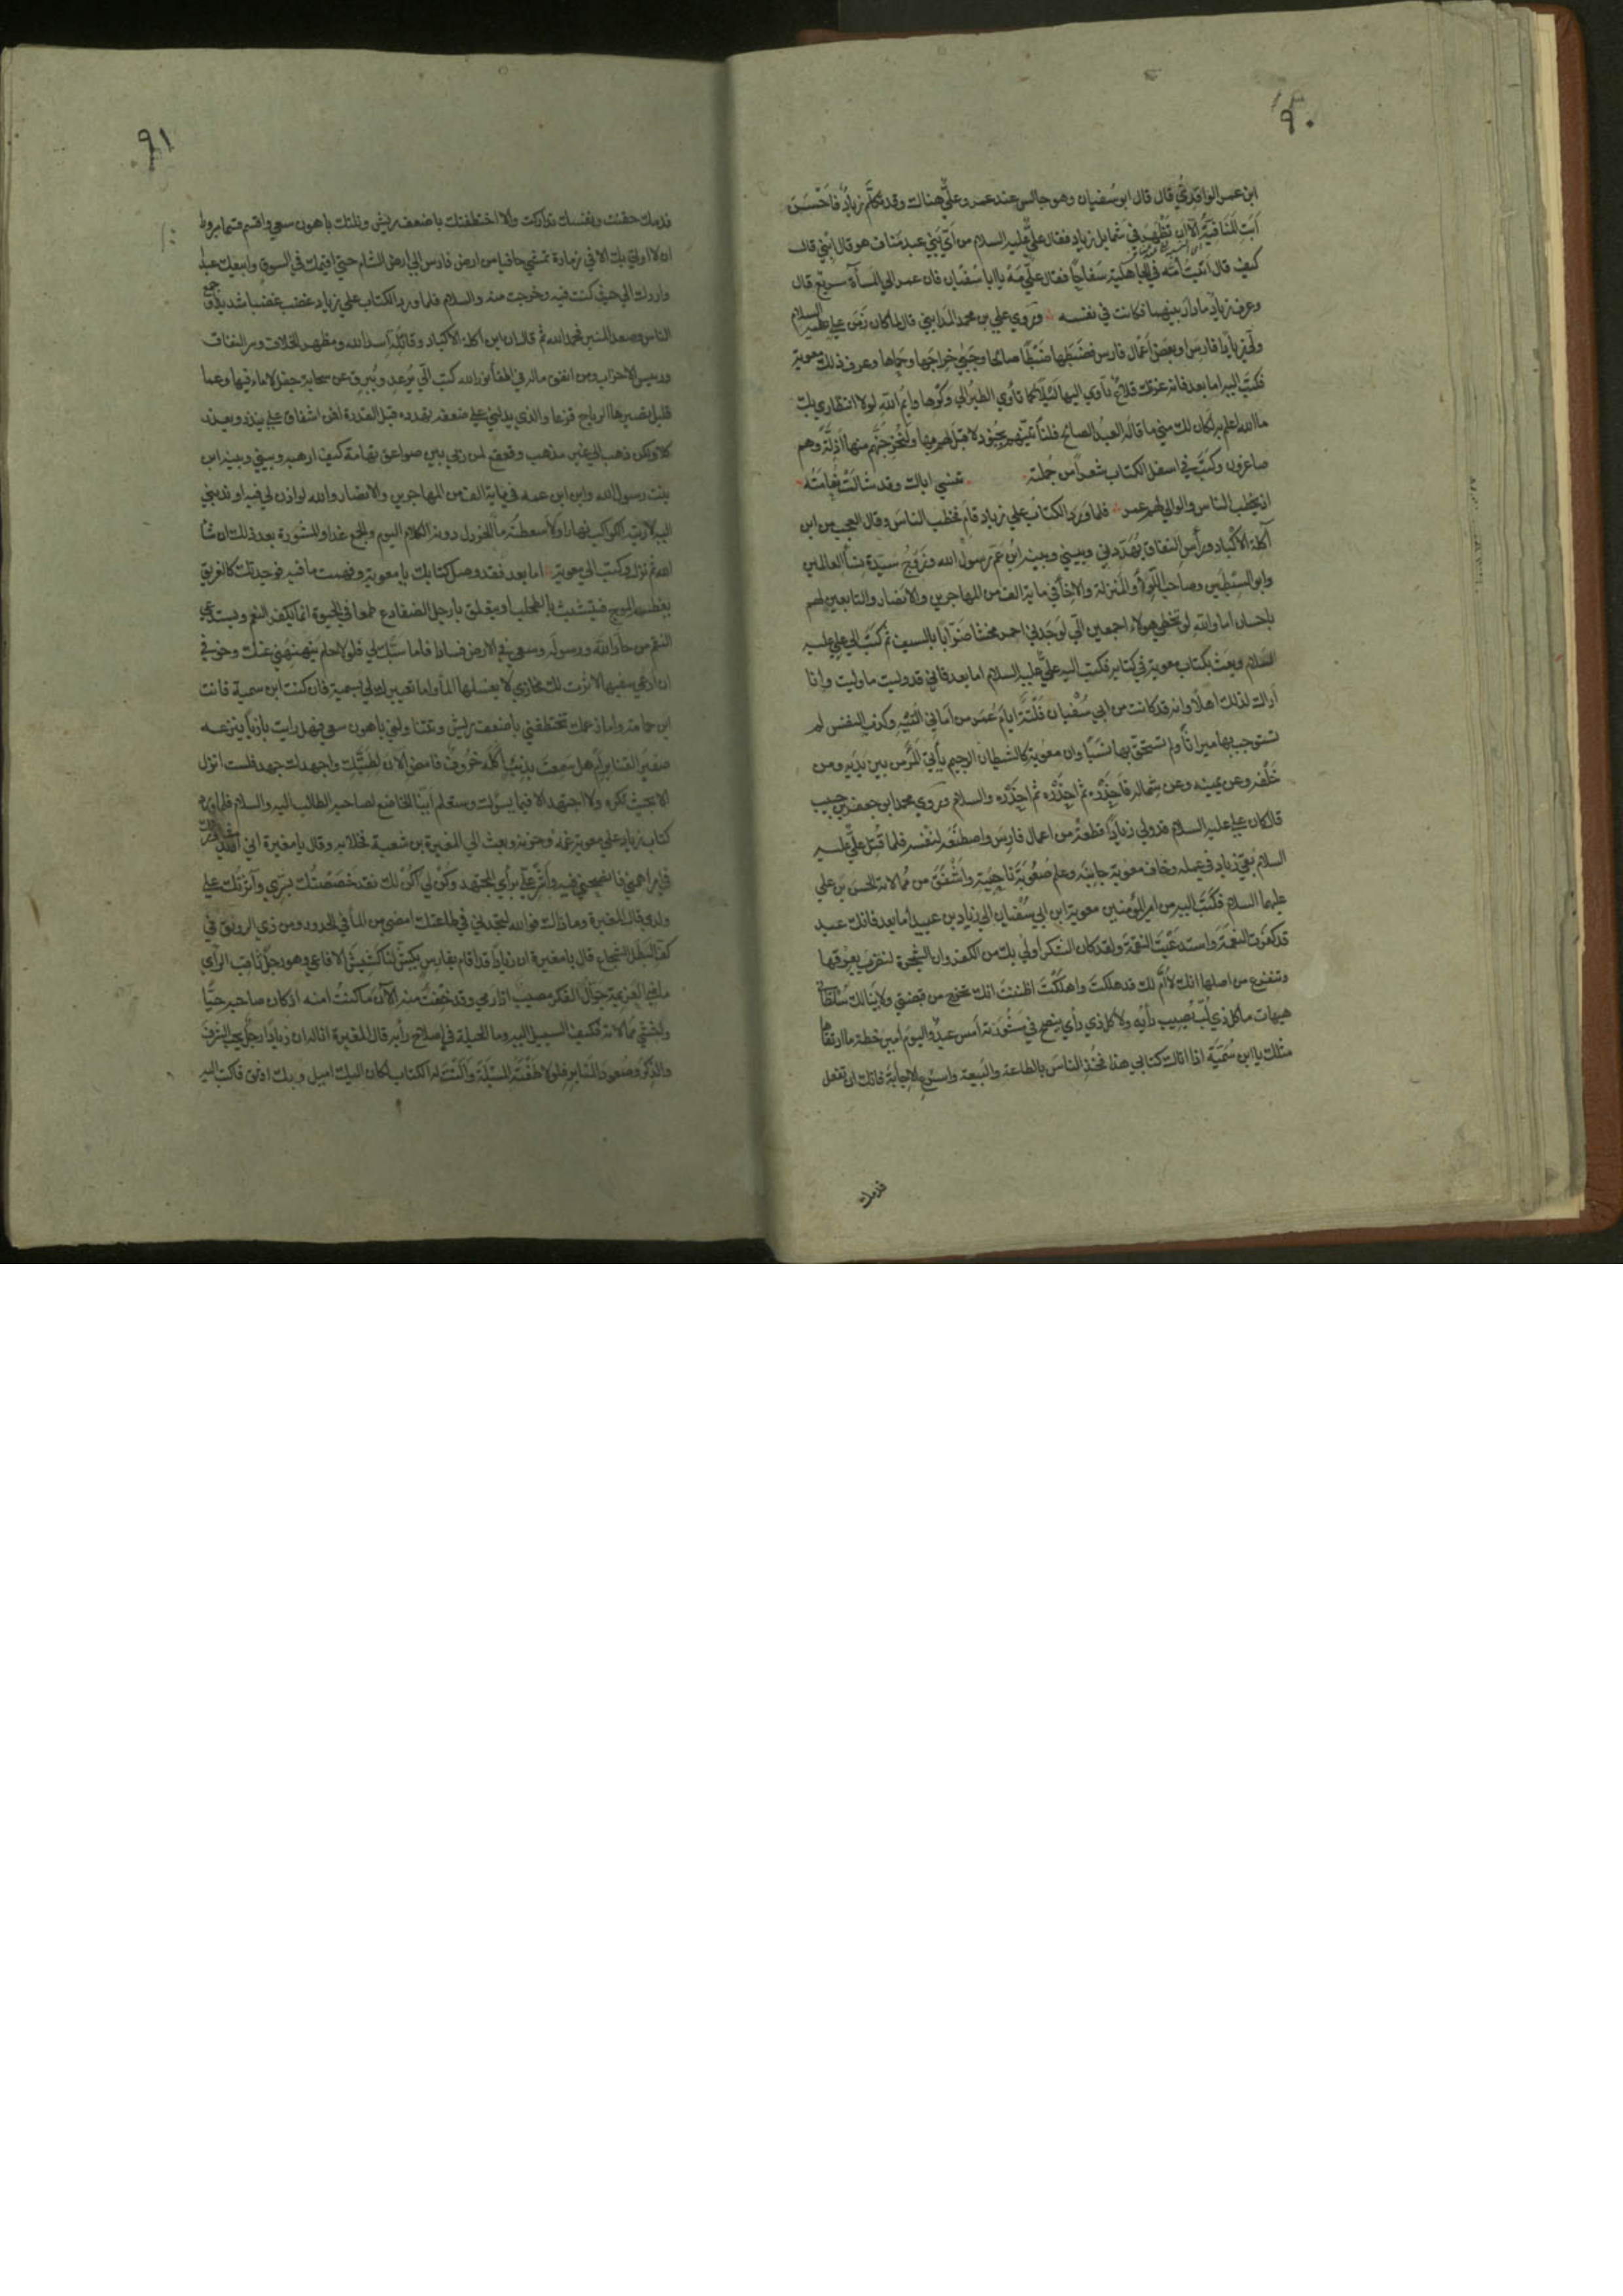 ٩٠
ابن عمر الواقدي قال قال ابو سفيان وهو جالس عند عمر وعلي هناك وقد تكلم زياد فاحسن
ابت المنافية الا ان تظهر في شمايل زياد فقال علي عليه السلام من اي بني عبد مناف هو قال ابني قال
كيف قال اتيت امه في الجاهلية سفاحا فقال علي مه يا ابا سفيان فان عمر الي المساة سريع قال
وعرف زياد ما دار بينهما فكانت في نفسه وروي علي بن محمد المدايني قال لما كان زمن علي عليه السلام
ولي زيادا فارس او بعض اعمال فارس فضبطها ضبطا صالحا وجبي خراجها وحماها وعرف ذلك معوية
فكتب اليه اما بعد فانه غرتك قلاع تاوي اليها ليلا كما تاوي الطير الي وكرها وايم الله لولا انتظاري بك
ما الله اعلم به لكان لك مني ما قاله العبد الصالح فلناتينهم بجنود لا قبل لهم بها ولنخرجنهم منها اذلة وهم
صاغرون وكتب في اسفل الكتاب شعرا من جملته تنسي اباك وقد شالت نعامته
اذ يخطب الناس والوالي لهم عمر فلما ورد الكتاب علي زياد قام فخطب الناس وقال العجب من ابن
آكلة الاكباد ورأس النفاق يهددني وبيني وبينه ابن عم رسول الله وزوج سيدة نسأ العالمين
وابو السبطين وصاحب الولا والمنزلة والاخأ في ماية الف من المهاجرين والانصار والتابعين لهم
باحسان اما والله لو تخطي هولاء اجمعين الي لوجدني احمر مخشا ضرابا بالسيف ثم كتب الي علي عليه
السلام وبعث بكتاب معوية في كتابه فكتب اليه علي عليه السلام اما بعد فاني قد وليتك ما وليت وانا
اراك لذلك اهلا وانه قد كانت من ابي سفيان فلتة ايام عمر من اماني التيه وكذب النفس لم
تستوجب بها ميراثا ولم تستحق بها نسبا وان معوية كالشيطان الرجيم يأتي المرء من بين يديه ومن
خلفه وعن يمينه وعن شماله فاحذره ثم احذره ثم احذره والسلام وروي محمد ابن جعفر بن حبيب
قال كان علي عليه السلام قد ولي زيادا قطعة من اعمال فارس واصطنعه لنفسه فلما قتل علي عليه
السلام بقي زياد في عمله وخاف معوية جانبه وعلم صعوبة ناحيته واشفق من ممالاته الحسن بن علي
عليهما السلام فكتب اليه من امير المؤمنين معوية ابن ابي سفيان الي زياد بن عبيد اما بعد فانك عبد
قد كفرت النعمة واستدعيت النقمة ولقد كان الشكر اولي بك من الكفر وان الشجرة لتضرب بعروقها
وتتفرع من اصلها انك لا ام لك قد هلكت واهلكت اظننت انك تخرج من قبضتي ولا ينالك سلطاني
هيهات ما كل ذي لب يصيب رأيه ولا كل ذي رأي ينصح في مشورته امس عبد واليوم امير خطة ما ارتقاها
مثلك يا ابن سمية اذا اتاك كتابي هذا فخذ الناس بالطاعة والبيعة واسرع الاجابة فانك ان تفعل
فدمك
٩١
فدمك حقنت ونفسك تداركت والا اختطفتك باضعف ريش ونلتك باهون سعي واقسم قسما مبرورا
ان لا اوتي بك الا في زمارة تمشي حافيا من ارض فارس الي ارض الشام حتي اقيمك في السوق وابيعك عبدا
واردك الي حيث كنت فيه وخرجت منه والسلام فلما ورد الكتاب علي زياد غضب غضبا شديدا وجمع
الناس وصعد المنبر فحمد الله ثم قال ان ابن اكلة الاكباد وقاتلة اسد الله ومظهر الخلاف ومسر النفاق
ورييس الاحزاب ومن انفق ماله في اطفأ نور الله كتب الي يرعد ويبرق عن سحابة جفل لا ماء فيها وعما
قليل تصيرها الرياح قزعا والذي يدلني علي ضعفه تهدده قبل القدرة افمن اشفاق علي ينذر ويعذر
كلا ولكن ذهب الي غير مذهب وقعقع لمن ربي بين صواعق تهامة كيف ارهبه وبيني وبينه ابن
بنت رسول الله وابن ابن عمه في ماية الف من المهاجرين والانصار والله لو اذن لي فيه او ندبني
اليه لاريته الكواكب نهارا ولاسعطته مأ الخردل دونه الكلام اليوم والجمع غدا والمشورة بعد ذلك ان شأ
الله ثم نزل وكتب الي معوية اما بعد فقد وصل كتابك يا معوية وفهمت ما فيه فوجدتك كالغريق
يغطيه الموج فيتشبث بالطحلب ويتعلق بارجل الضفادع طمعا في الحيوة انما يكفر النعم ويستدعي
النقم من حاد الله ورسوله وسعي في الارض فسادا فاما سبك لي فلولا حلم ينهنهني عنك وخوفي
ان ادعي سفيها لاثرت لك مخازي لا يغسلها المأ واما تعييرك لي بسمية فان كنت ابن سمية فانت
ابن حمامة واما زعمك تختطفني باضعف ريش وتنا ولني باهون سعي فهل رايت بازيا يفزعه
صفير القنابر ام هل سمعت بذيب اكله خروف فامض الان لطيتك واجهد جهدك فلست انزل
الا بحيث تكره ولا اجتهد الا فيما يسؤك وستعلم اينا الخاضع لصاحبه الطالب اليه والسلام فلما ورد
كتاب زياد علي معوية غمه وحزنه وبعث الي المغيرة بن شعبة فخلا به وقال يا مغيرة اني اريد مشاورتك
في امر اهمني فانصحني فيه واشر علي برأي المجتهد وكن لي اكن لك فقد خصصتك بسري وآثرتك علي
ولدي قال المغيرة وما ذاك فوالله لتجدني في طاعتك امضي من المأ في الحدور ومن ذي الرونق في
كف البطل الشجاع قال يا مغيرة ان زيادا قد اقام بفارس يكش لنا كشيش الافاعي وهو رجل ثاقب الرأي
ماضي العزيمة جوال الفكر مصيب اذا رمي وقد خفت منه الآن ما كنت امنه اذ كان صاحبه حيا
واخشي ممالاته فكيف السبيل اليه وما الحيلة في اصلاح رأيه قال المغيرة انا له ان زيادا رجل يحب الشرف
والذكر وصعود المنابر فلو لاطفته المسئلة والنت له الكتاب لكان اليك اميل وبك اوثق فاكتب اليه